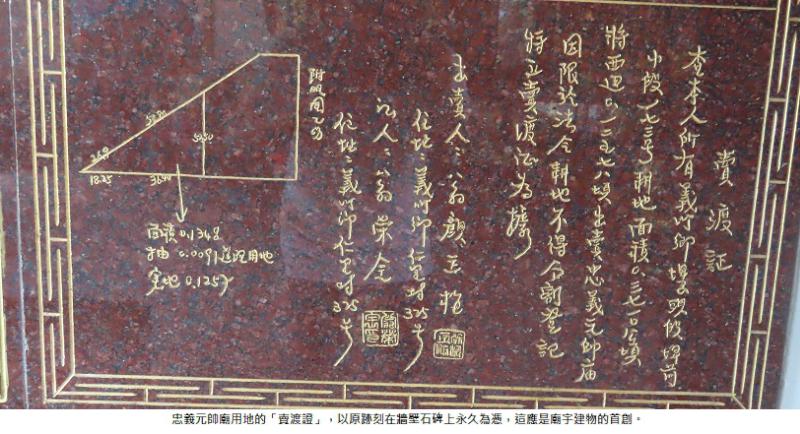 賣渡証
查本人所有義竹鄉埤頭段埤前
小段一七三号耕地面積0.三七一0公頃
將西邊0.一二五七八頃出賣忠義元帥庙
因限於法令耕地不得分割登記
特立賣渡証為據
出賣人:翁顏玉
住址:義竹鄉仁里村325号
証人:翁榮
住址:義竹鄉仁里村325号
附略圖乙份
50.50
18.25
面積0.1348
抽0.0091道路用地
實地0.1257
忠義元帥廟用地的「賣渡證」,以原跡刻在牆壁石碑上永久為憑,這應是廟宇建物的首創。